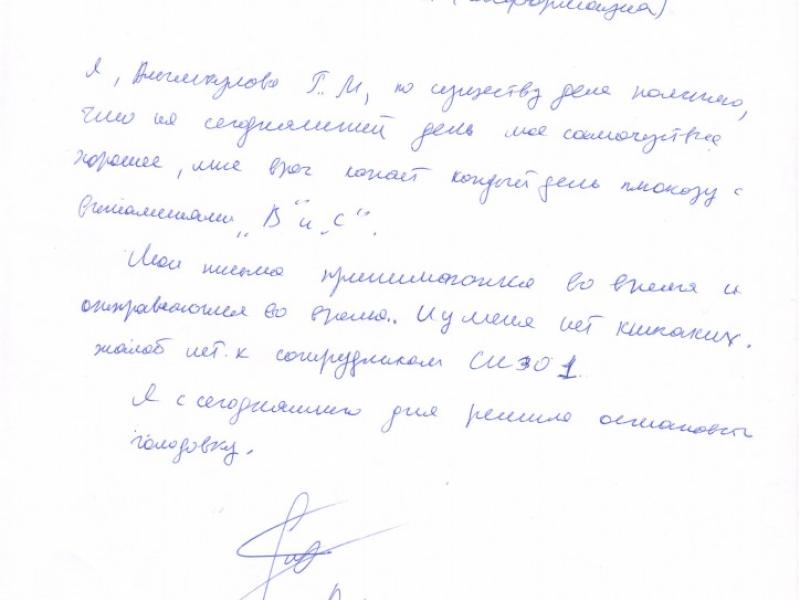 (информация)
Я, Анимкулова Г. М, по существу дела поясняю,
что на сегодняшний день мое самочуствие
хорошее, мне врач капает каждый день глюкозу с
витаминами „В" и „С".
Мои письма принимаются во время и
отправляются во время.. И у меня нет никаких.
жалоб нет. к сотрудникам СИЗО 1.
Я с сегодняшнего дня решила остановить
голодовку.